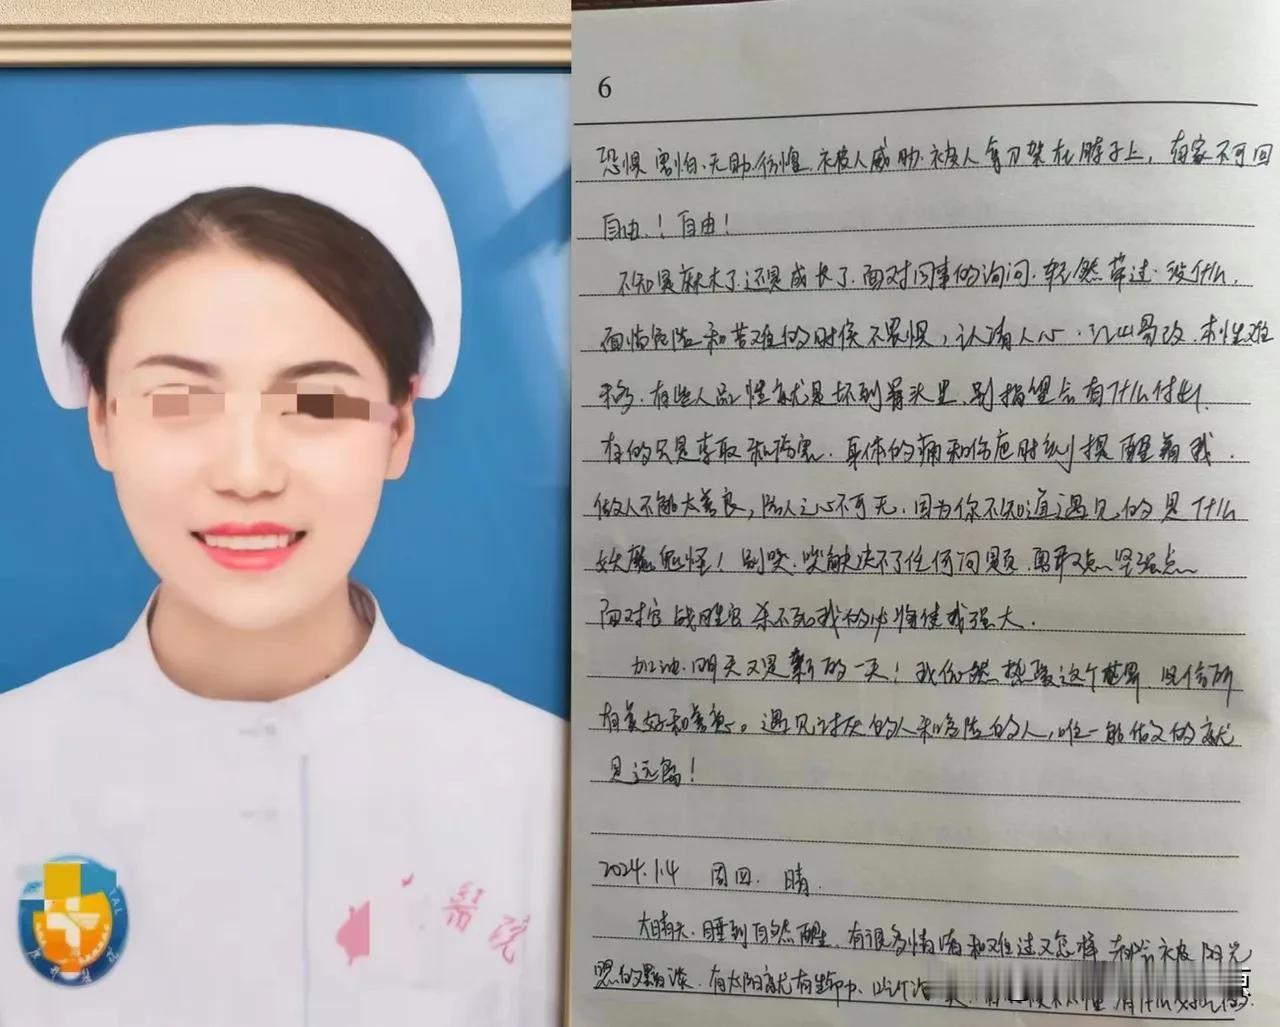 6
恐惧、害怕、无助、彷惶、被人威胁、被人拿刀架在脖子上，有家不可回
自由！自由！
不知是麻木了还是成长了，面对同事的询问，轻然带过，没什么，
面临危险和苦难的时候不畏惧，认清人心，江山易改，本性难
移，有些人品性就是坏到骨头里，别指望会有什么付出，
有的只是索取和伤害，身体的痛和伤疤时刻提醒着我，
做人不能太善良，防人之心不可无，因为你不知道遇见的是什么
妖魔鬼怪！别哭，哭解决不了任何问题，勇敢点坚强点
面对它战胜它杀不死我的必将使我强大。
加油，明天又是新的一天！我依然热爱这个世界，且信所
有美好和善意。遇见讨厌的人和危险的人，唯一能做的就
是远离！
2024.1.4 周四 晴
大晴天，睡到自然醒，有很多情绪和难过又怎样，都会被阳光
照的黯淡，有太阳就有生命力，
醫院
TAL